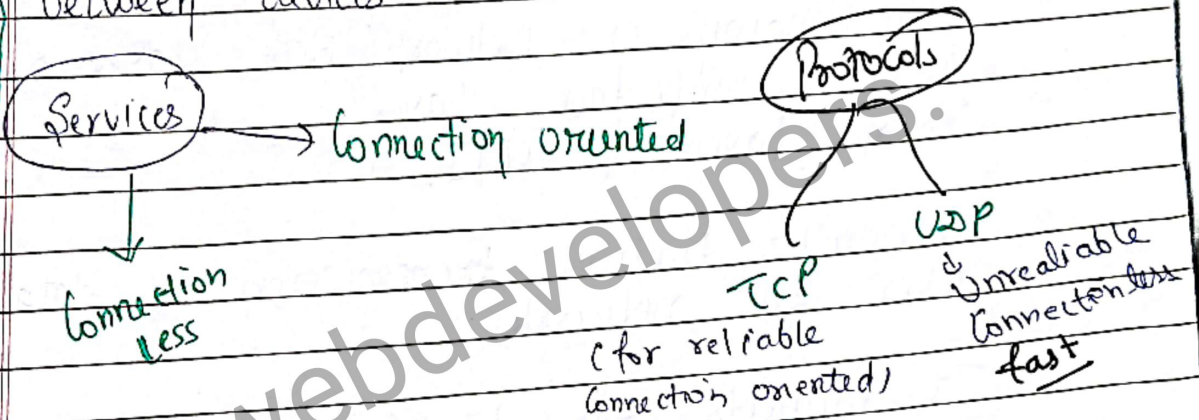 between devices
Services
Connection oriented
Connection
Less
Protocols
TCP
(for reliable
Connection oriented)
UDP
Unrealiable
Connectionless
fast
webdevelopers.